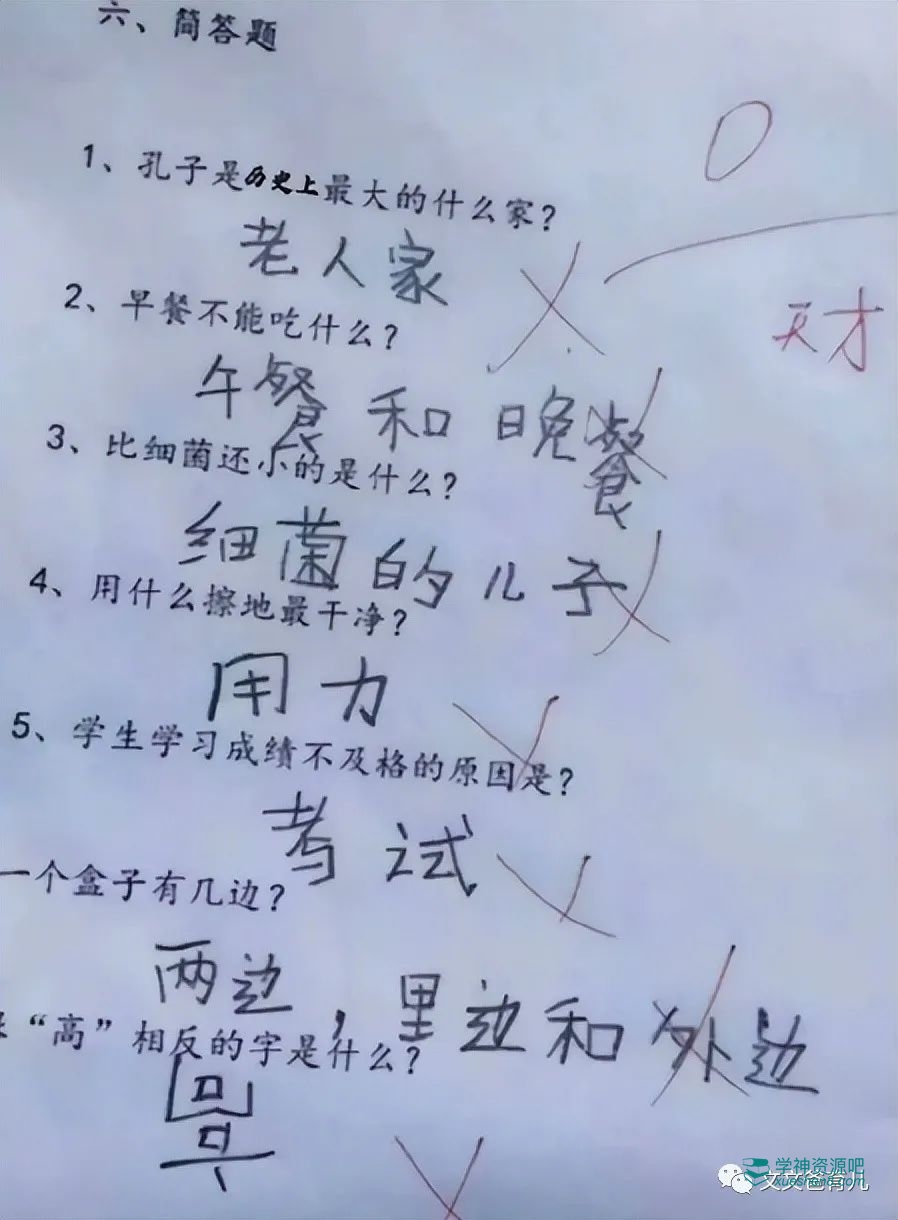 六、简答题
0
1、孔子是历史上最大的什么家?
老人家
天才
2、早餐不能吃什么?
午餐和晚餐
3、比细菌还小的是什么?
细菌的儿子
4、用什么擦地最干净?
用力
5、学生学习成绩不及格的原因是?
考试
一个盒子有几边?
两边，里边和外边
“高”相反的字是什么?
学神资源吧
xueshen8.com
文文爸育儿